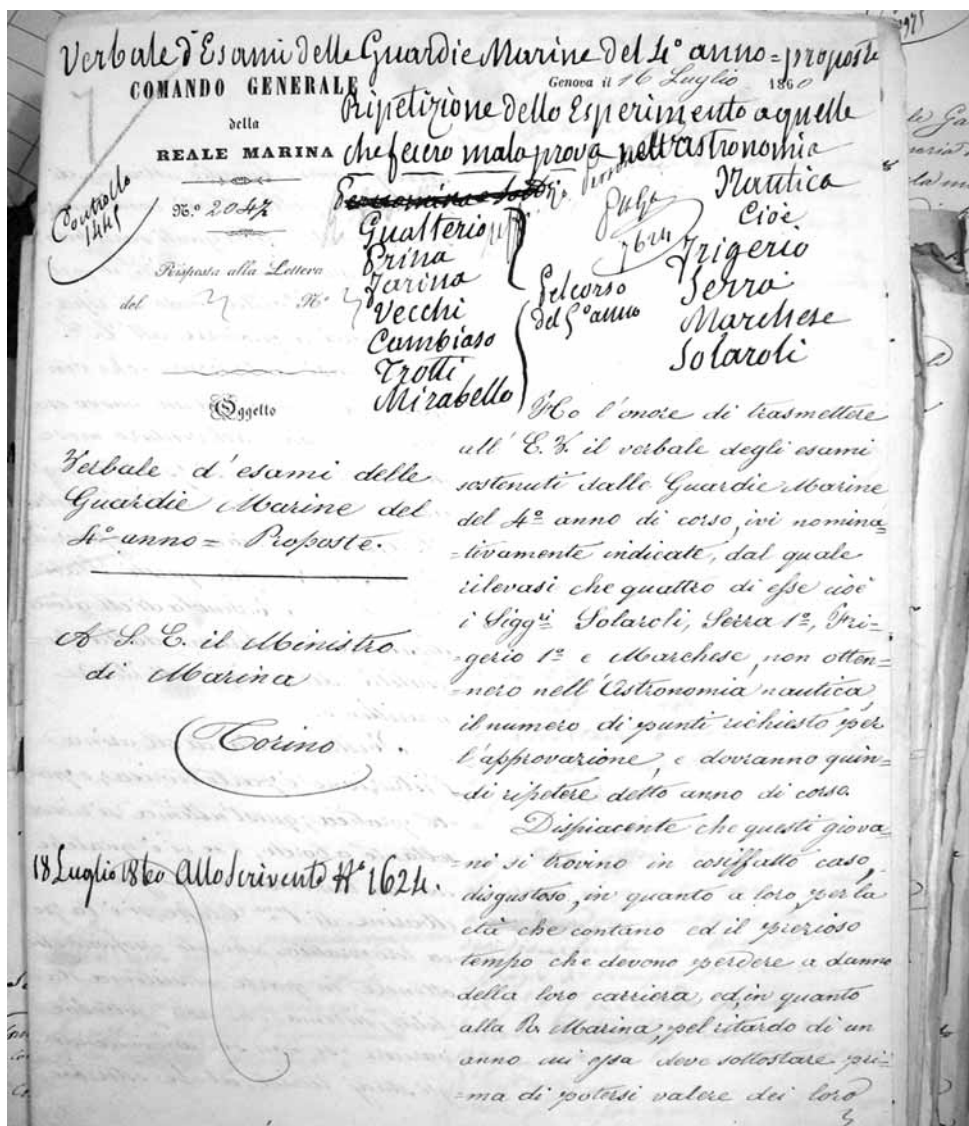 Verbale d'Esami delle Guardie Marine del 4° anno = proposte
COMANDO GENERALE
della
REALE MARINA
Genova il 16 Luglio 1860
Ripetizione dello Esperimento a quelle
che fecero mala prova nell'astronomia
Nautica
Cioè
Frigerio
Serra
Marchese
Solaroli
Controllo
1445
N.° 2047
Risposta alla Lettera
del N.°
Gualterio
Prina
Farina
Vecchi
Cambiaso
Trotti
Mirabello
Pel corso
del 5° anno
1624
Oggetto
Verbale d'esami delle
Guardie Marine del
4° anno = Proposte.
A S. E. il Ministro
di Marina
Torino.
18 Luglio 1860 Allo Scrivente N° 1624.
Ho l'onore di trasmettere
all' E. V. il verbale degli esami
sostenuti dalle Guardie Marine
del 4° anno di corso, ivi nomina=
=tivamente indicate, dal quale
rilevasi che quattro di esse cioè
i Sigg.ri Solaroli, Serra 1°, Fri=
=gerio 1° e Marchese, non otten=
=nero nell'Astronomia nautica,
il numero di punti richiesto per
l'approvazione, e dovranno quin=
=di ripetere detto anno di corso.
Dispiacente che questi giova=
=ni si trovino in cosiffatto caso,
disgustoso, in quanto a loro, per la
età che contano ed il prezioso
tempo che devono perdere a danno
della loro carriera, ed, in quanto
alla R. Marina, pel ritardo di un
anno cui essa deve sottostare pri=
=ma di potersi valere dei loro